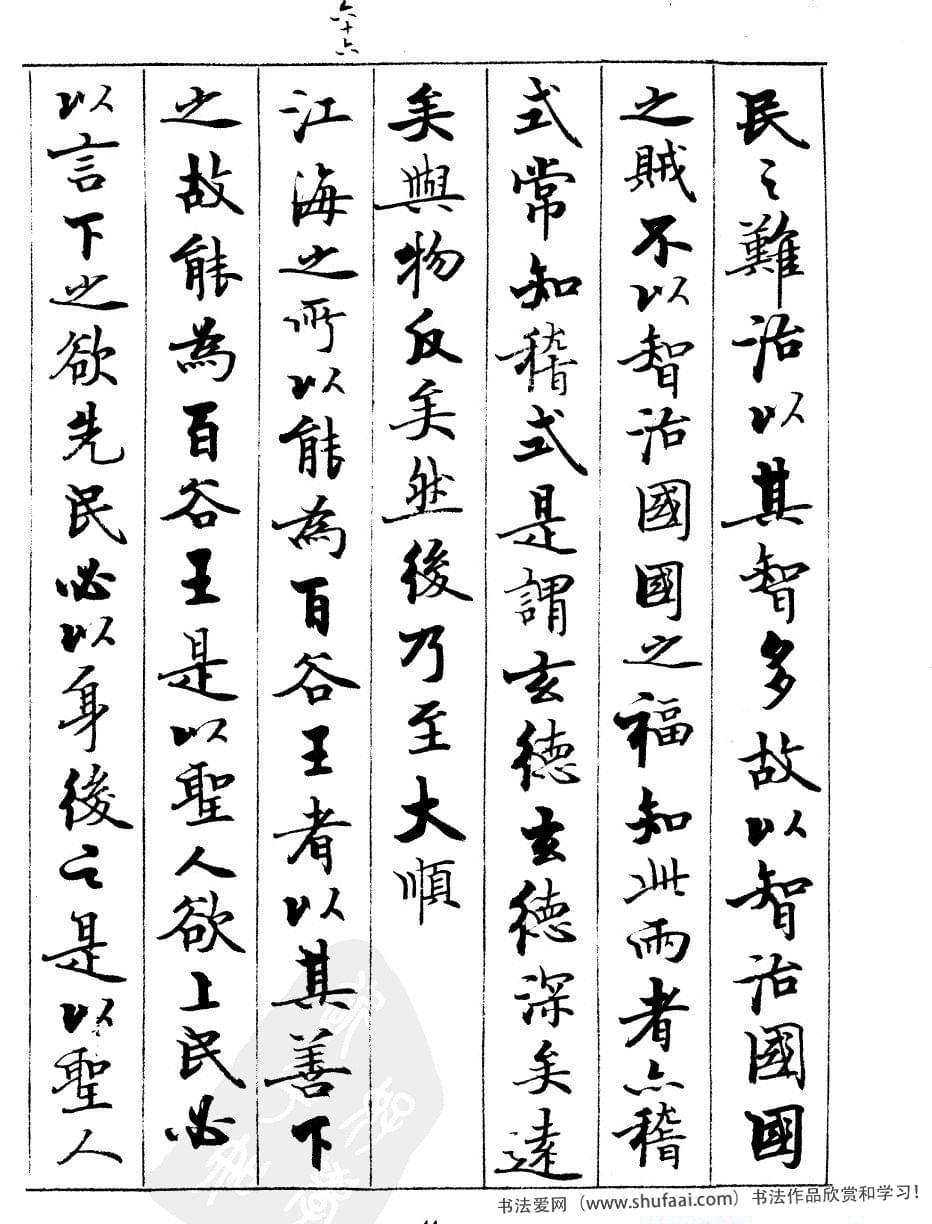 六十六
民之難治以其智多故以智治國國
之賊不以智治國國之福知此兩者亦稽
式常知稽式是謂玄德玄德深矣遠
矣與物反矣然後乃至大順
江海之所以能為百谷王者以其善下
之故能為百谷王是以聖人欲上民必
以言下之欲先民必以身後之是以聖人
书法爱网（www.shufaai.com）书法作品欣赏和学习！